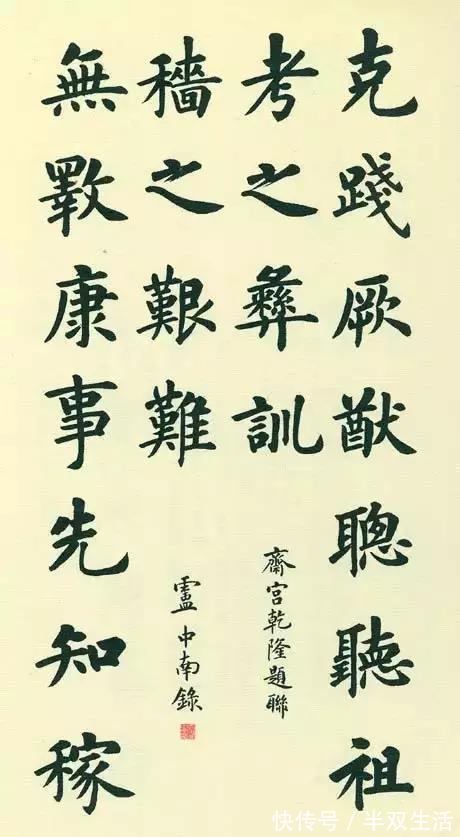 克踐厥猷聰聽祖
考之彝訓
無斁康事先知稼
穡之艱難
齋宮乾隆題聯
盧中南錄
快传号／半双生活